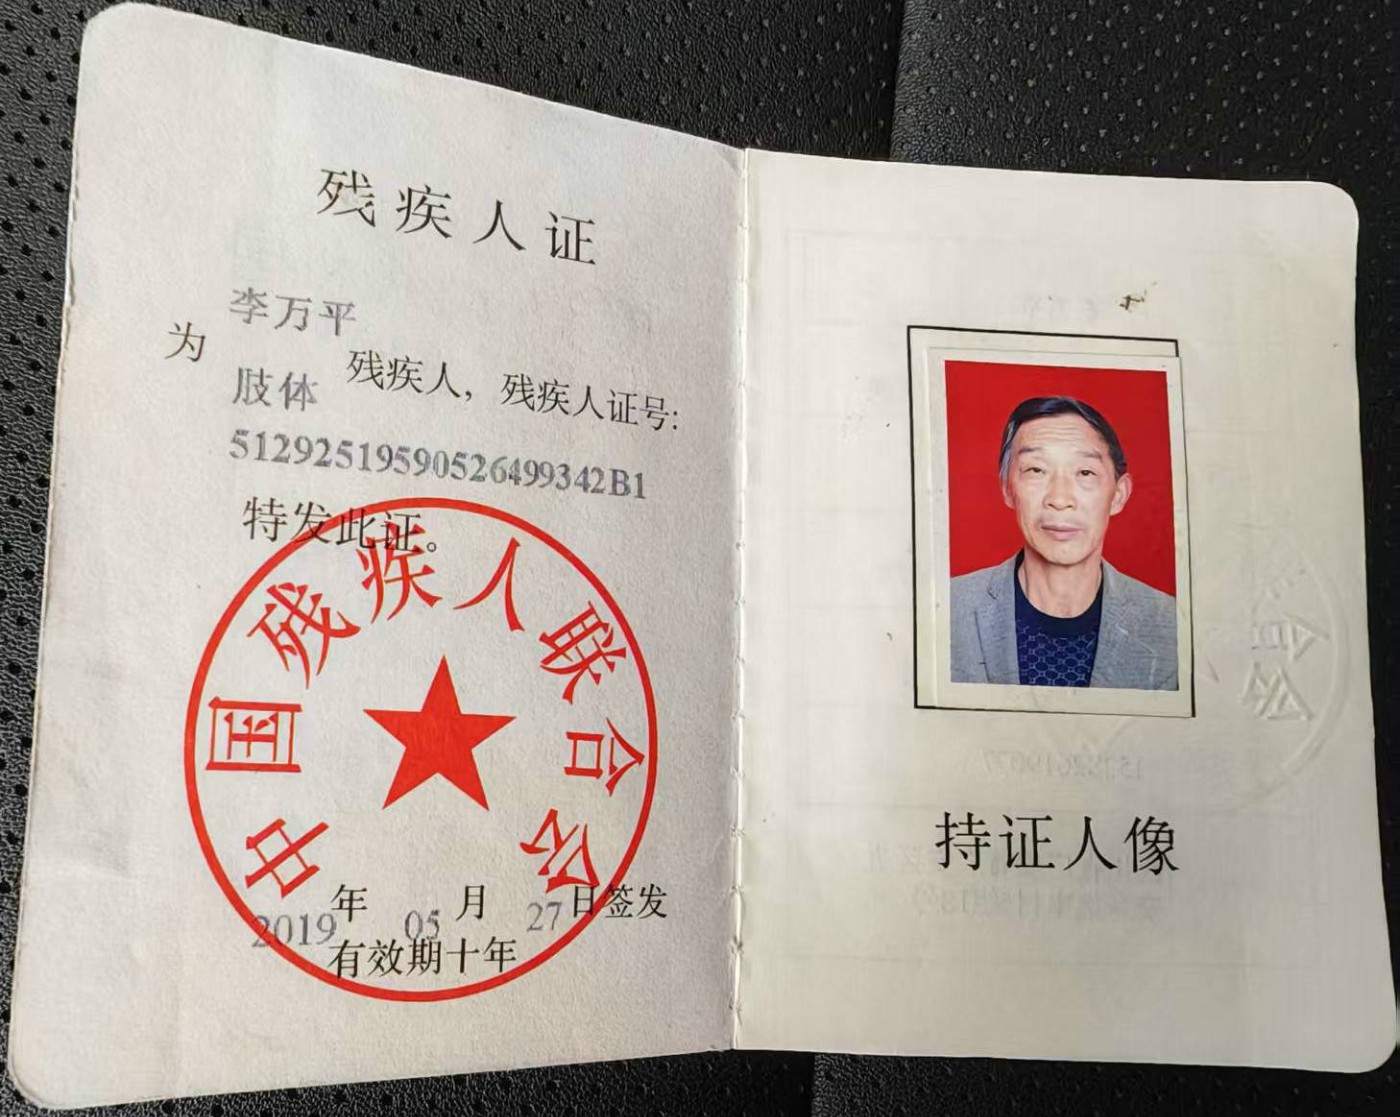 残疾人证
李万平
为
肢体 残疾人，残疾人证号:
51292519590526499342B1
特发此证。
中国残疾人联合会
2019年05月27日签发
有效期十年
持证人像